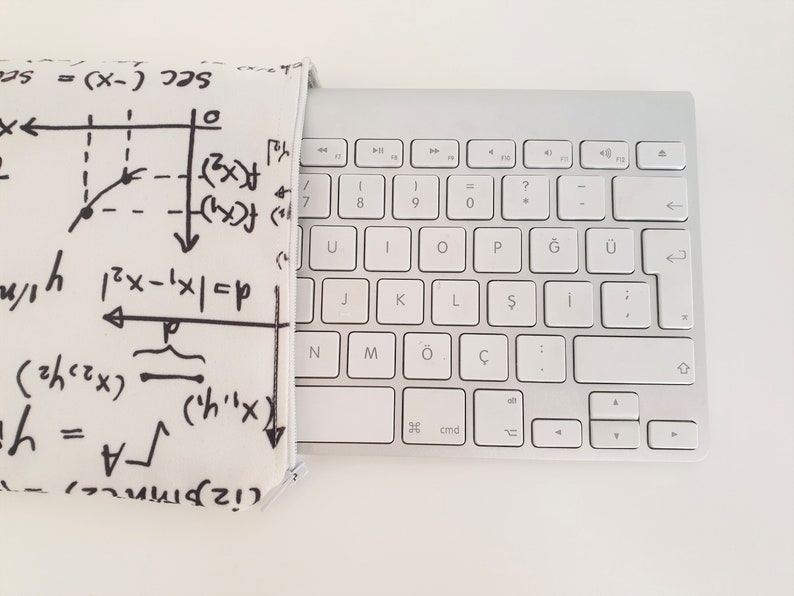 sec (-x) = sec
0
x
f(x₂)
f(x₁)
y₂|
y^1/n
d = |x₁ - x₂|
d
(x₂, y₂)
(x₁, y₁)
√A
= y
F7 F8 F9 F10 F11 F12
/ 7 ( 8 ) 9 = 0 ? * _ -
U I O P Ğ Ü
J K L Ş İ ; ,
N M Ö Ç : .
cmd alt